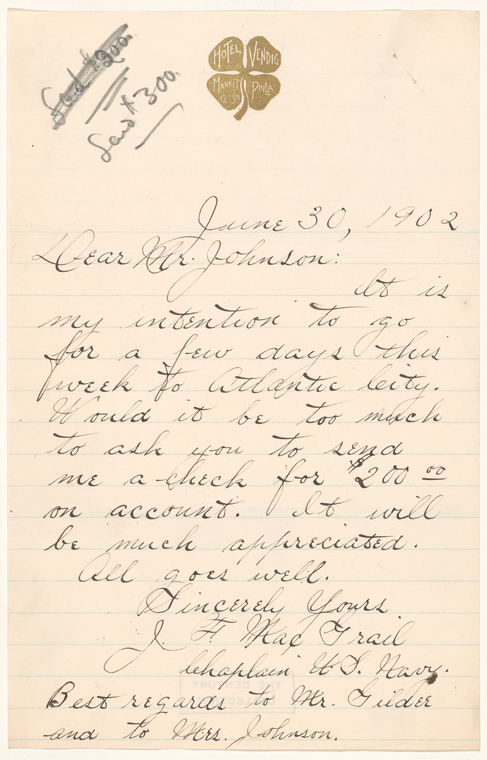 Send $200.
Send $300.
HOTEL VENDIG
MARKET & 12TH ST. PHILA.
June 30, 1902
Dear Mr. Johnson:
It is
my intention to go
for a few days this
week to Atlantic City.
Would it be too much
to ask you to send
me a check for $200 00
on account. It will
be much appreciated.
All goes well.
Sincerely Yours
J F Mac Grail
Chaplain U S. Navy.
Best regards to Mr. Gilder
and to Mrs. Johnson.